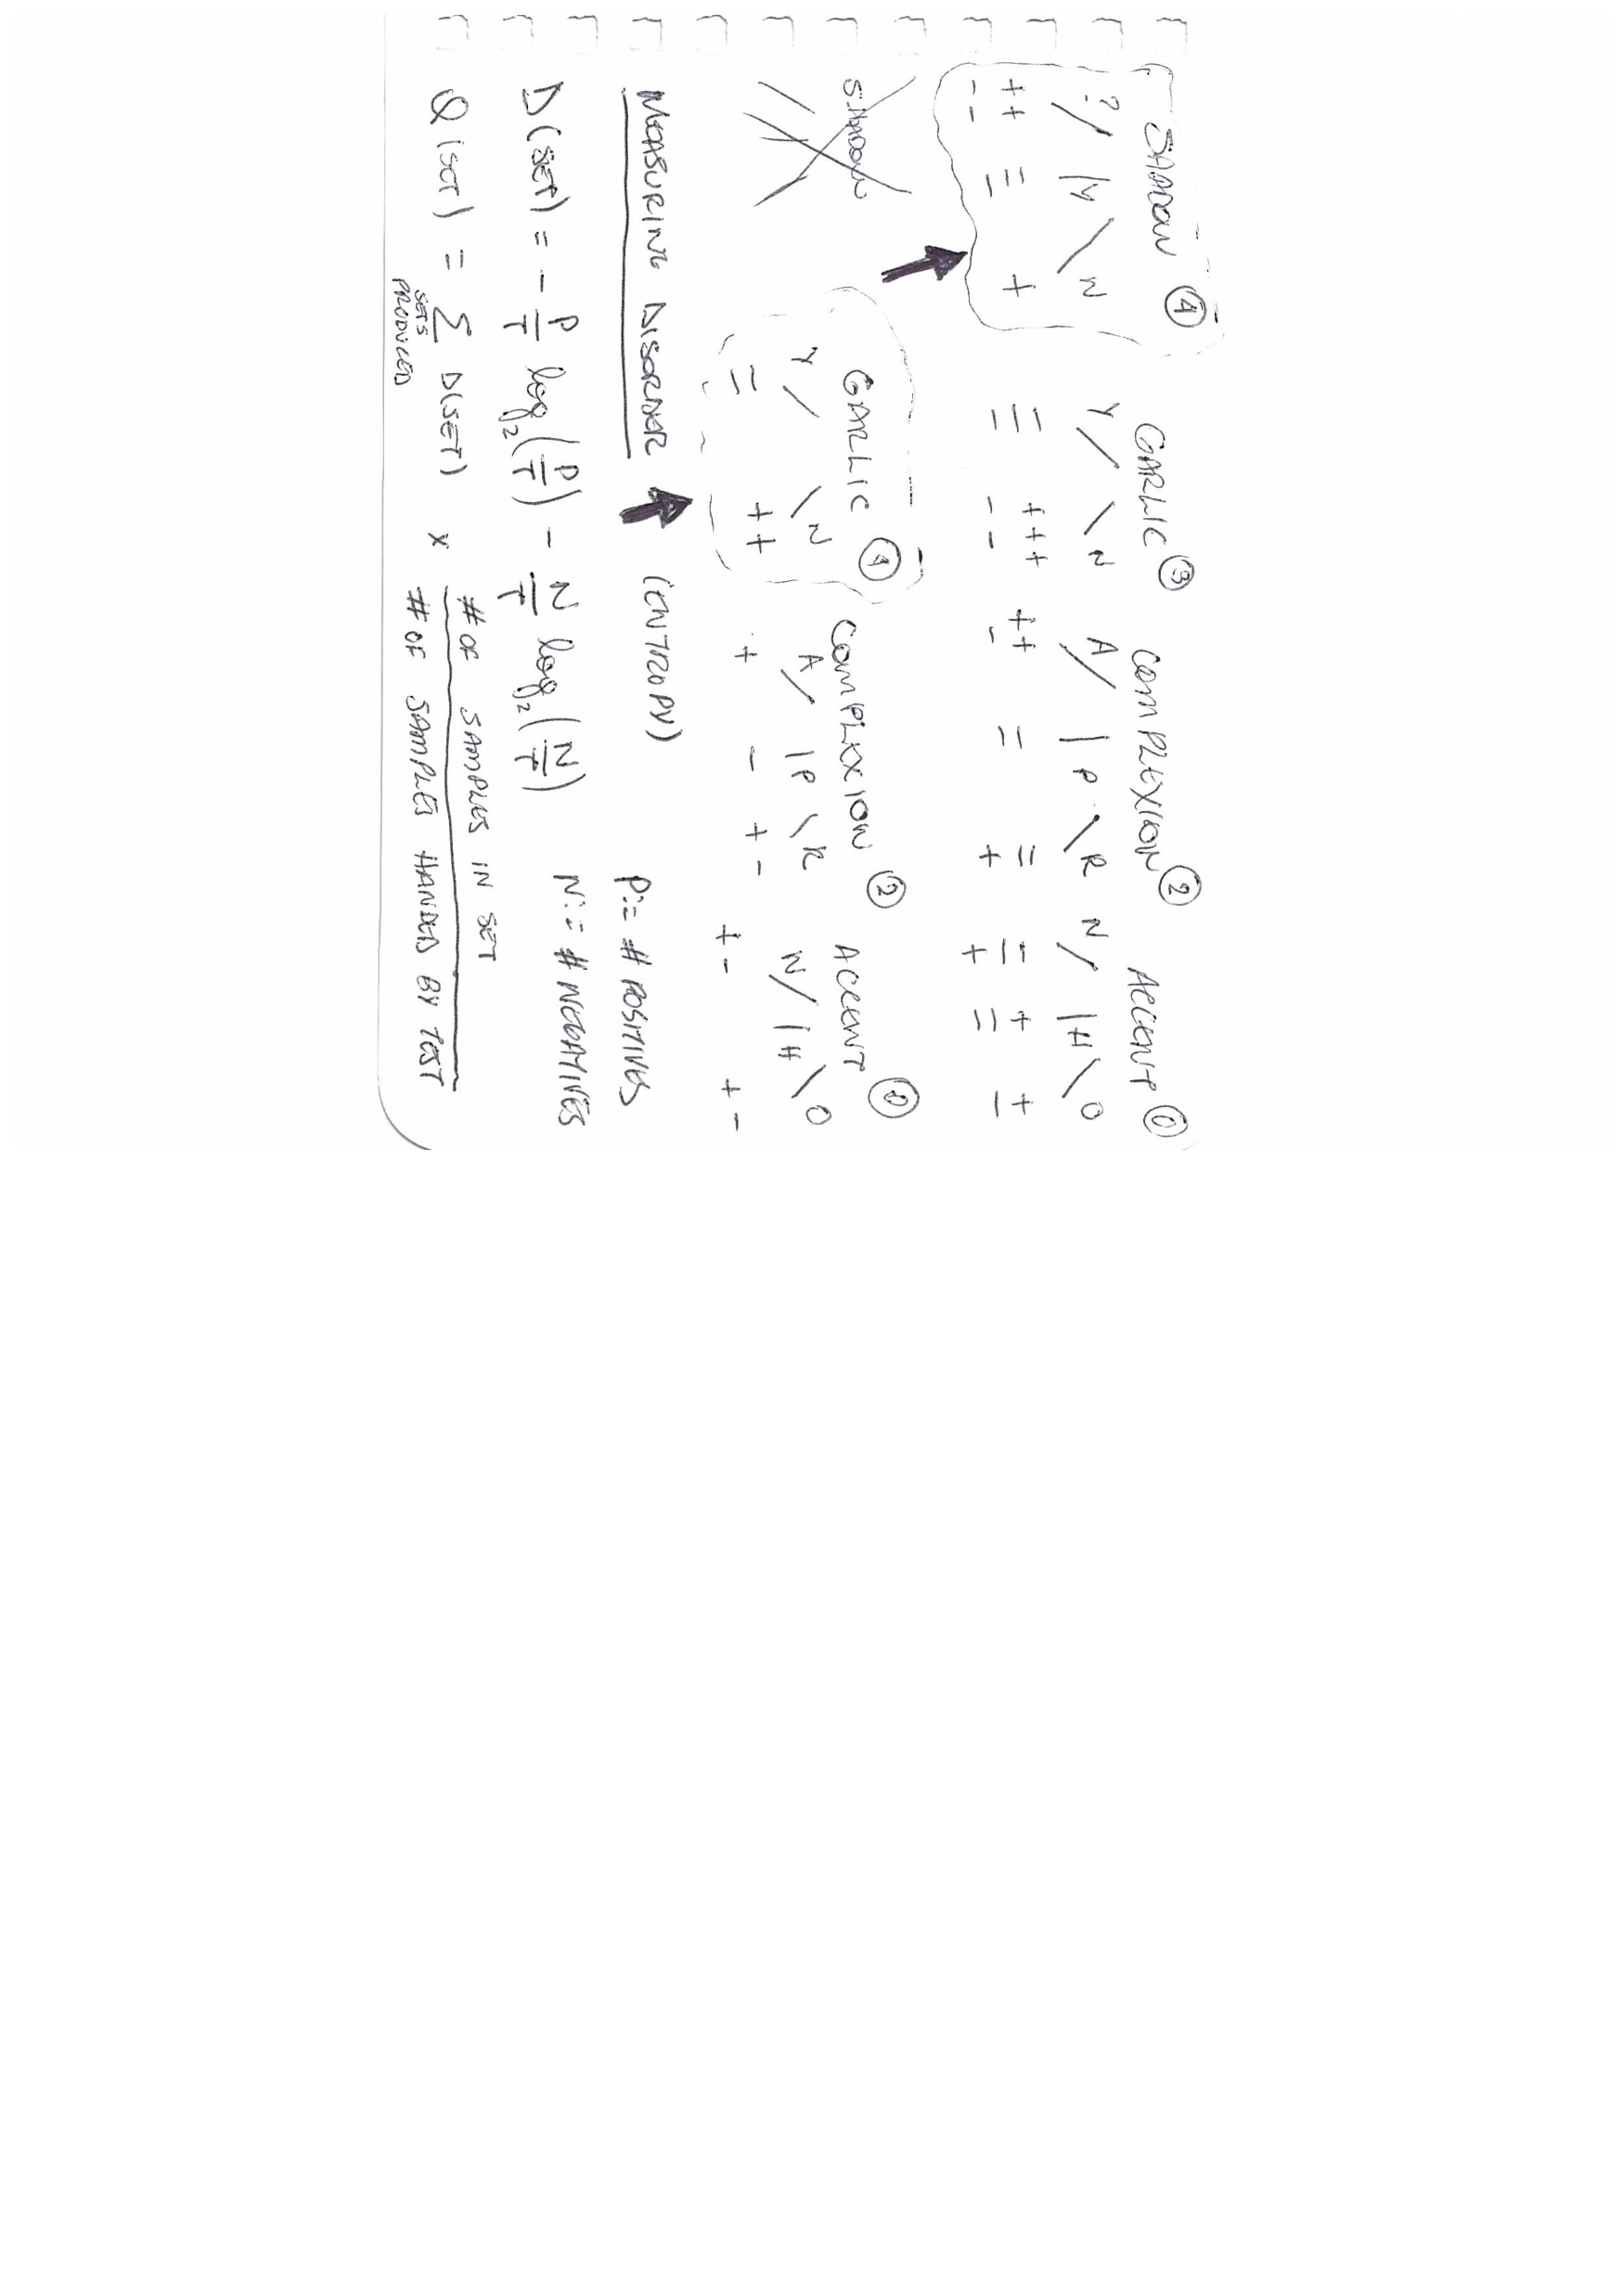 SHADOW ④ GARLIC ③ COMPLEXION ② ACCENT ⓪
? / | Y \ N Y / \ N A / | P \ R N / | H \ O
+ + = + = + + + + + = = = + +
- - - - - - - + = -
SHADOW GARLIC ④ COMPLEXION ② ACCENT ⓪
Y / \ N A / | P \ R N / | H \ O
= + + + - + - + - + -
MEASURING DISORDER (ENTROPY) P:= # POSITIVES
N:= # NEGATIVES
D(SET) = - P/T log₂(P/T) - N/T log₂(N/T)
Q(SET) = Σ D(SET) x # OF SAMPLES IN SET
SETS PRODUCED # OF SAMPLES HANDED BY TEST